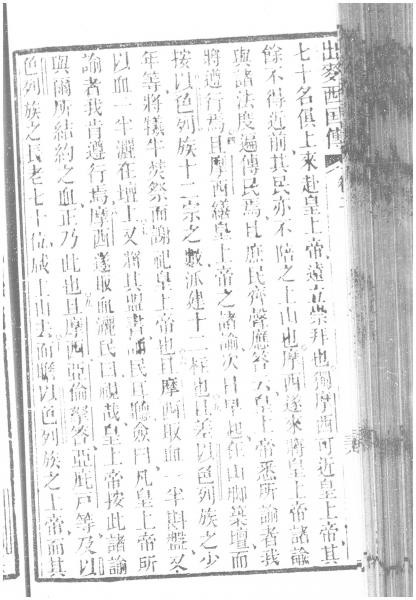 出麥西國傳 卷二
七十名俱上來赴皇上帝、遠立崇拜也獨摩西可近皇上帝、其
餘不得近前其民亦不陪之上山也摩西遂來將皇上帝諸諭
與諸法度遍傳民焉且庶民齊聲應答云、皇上帝悉所諭者我
將遵行焉且摩西繕皇上帝之諸諭、次日早起在山脚築壇而
按以色列族十二宗之數派建十二柱也且差以色列族之少
年等將犧牛焚祭而謝祀皇上帝也且摩西取血一半斟盤、又
以血一半灑在壇上又將其盟書誦民耳聽僉曰凡皇上帝所
諭者我肯遵行焉摩西遂取血灑民曰視哉皇上帝按此諸諭
與爾所結約之血正乃此也且摩西亞倫拏答、亞庇戶等及以
色列族之長老七十位、咸上山去而瞻以色列族之上帝、而其